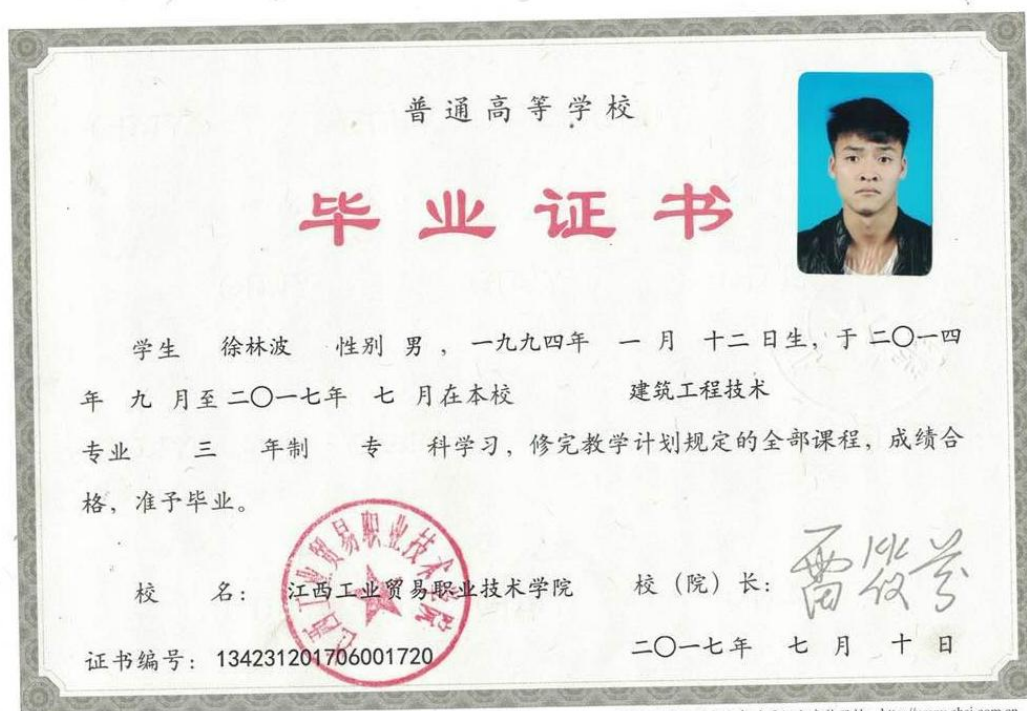 普通高等学校
毕业证书
学生 徐林波 性别 男 ,一九九四年 一 月 十二 日生,于 二〇一四
年 九 月至 二〇一七年 七 月在本校 建筑工程技术
专业 三 年制 专 科学习,修完教学计划规定的全部课程,成绩合
格,准予毕业。
江西工业贸易职业技术学院
校 名: 江西工业贸易职业技术学院 校(院)长:
证书编号: 134231201706001720 二〇一七年 七 月 十 日